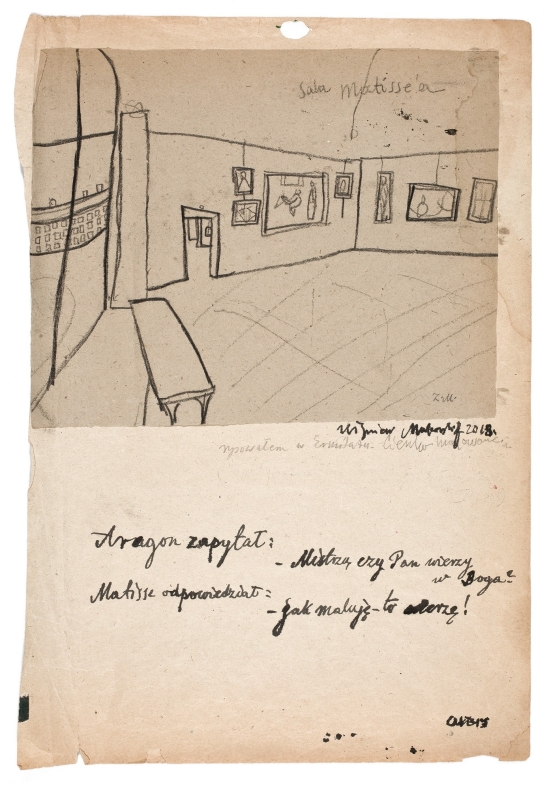 Sala Matisse'a
Z.M.
Zbigniew Makowski 2018.
rysowałem w Ermitażu
Aragon zapytał:
- Mistrzu, czy Pan wierzy
w Boga?
Matisse odpowiedział:
- jak maluję - to wierzę!